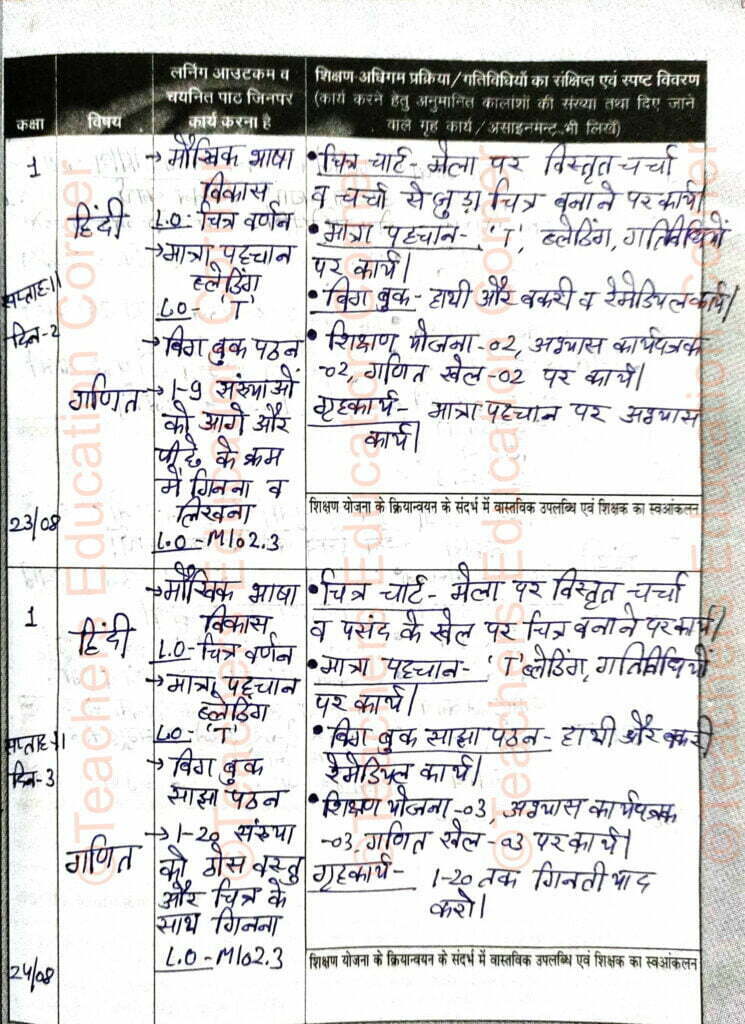 कक्षा
विषय
लर्निंग आउटकम व
चयनित पाठ जिनपर
कार्य करना है
शिक्षण अधिगम प्रक्रिया/गतिविधियों का संक्षिप्त एवं स्पष्ट विवरण
(कार्य करने हेतु अनुमानित कालांशों की संख्या तथा दिए जाने
वाले गृह कार्य/असाइनमेन्ट भी लिखें)
1
सप्ताह-11
दिन-2
23/08
हिंदी
गणित
→ मौखिक भाषा
विकास
L.O- चित्र वर्णन
→ मात्रा पहचान
ब्लेडिंग
L.O- 'T'
→ बिग बुक पठन
→ 1-9 संख्याओं
को आगे और
पीछे के क्रम
में गिनना व
लिखना
L.O-M102.3
• चित्र चार्ट- मेला पर विस्तृत चर्चा
व चर्चा से जुड़ा चित्र बनाने पर कार्य।
• मात्रा पहचान- 'T', ब्लेडिंग, गतिविधियों
पर कार्य।
• बिग बुक- हाथी और बकरी व रेमेडियल कार्य।
• शिक्षण योजना-02, अभ्यास कार्यपत्रक
-02, गणित खेल-02 पर कार्य।
गृहकार्य- मात्रा पहचान पर अभ्यास
कार्य।
शिक्षण योजना के क्रियान्वयन के संदर्भ में वास्तविक उपलब्धि एवं शिक्षक का स्वआंकलन
1
सप्ताह-11
दिन-3
24/08
हिंदी
गणित
→ मौखिक भाषा
विकास
L.O- चित्र वर्णन
→ मात्रा पहचान
ब्लेडिंग
L.O- 'T'
→ बिग बुक
साझा पठन
→ 1-20 संख्या
को ठोस वस्तु
और चित्र के
साथ गिनना
L.O-M102.3
• चित्र चार्ट- मेला पर विस्तृत चर्चा
व पसंद के खेल पर चित्र बनाने पर कार्य।
• मात्रा पहचान- 'T' ब्लेडिंग, गतिविधियों
पर कार्य।
• बिग बुक साझा पठन- हाथी और बकरी
रेमेडियल कार्य।
• शिक्षण योजना-03, अभ्यास कार्यपत्रक
-03, गणित खेल-03 पर कार्य।
गृहकार्य- 1-20 तक गिनती याद
करो।
शिक्षण योजना के क्रियान्वयन के संदर्भ में वास्तविक उपलब्धि एवं शिक्षक का स्वआंकलन
©Teachers Education Corner
©Teachers Education Corner
©Teachers Education Corner
©Teachers Education Corner
©Teachers Education Corner